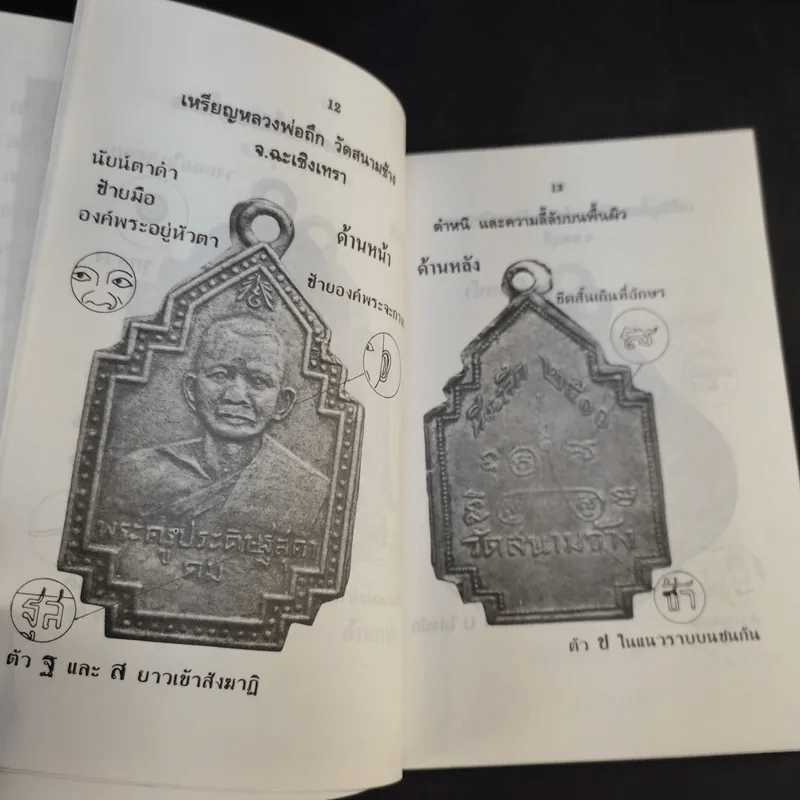 12
เหรียญหลวงพ่อถึก วัดสนามช้าง
จ.ฉะเชิงเทรา
นัยน์ตาดำ
ซ้ายมือ
องค์พระอยู่หัวตา
ด้านหน้า
ซ้ายองค์พระจะ
พระครูประดิษฐ์สุตา
คม
ฐส
ตัว ฐ และ ส ยาวเข้าสังฆาฏิ
13
ตำหนิ และความลี้ลับบนพื้นผิว
ด้านหลัง
ขีดสั้นเกินที่อักษร
ที่ระลึก ๒๕๑๐
วัดสนามช้าง
ช้า
ตัว ช ในแนวราบบนชนกัน